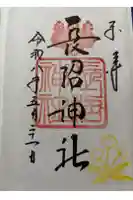 奉拝
長沼神社
令和 年五月二十一日